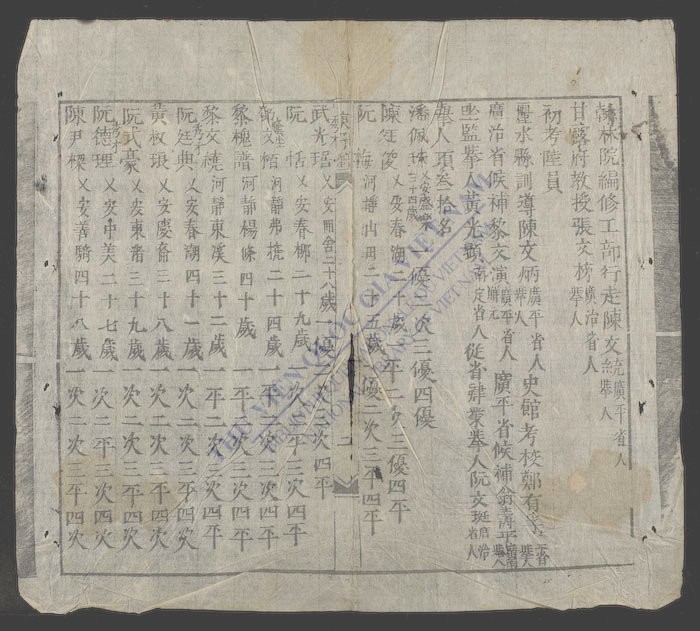 翰林院編修工部行走陳文統廣平省人舉人
甘露府教授張文榜廣治省人舉人
初考陸員
豐水縣訓導陳文炳廣平省人舉人 史館考校鄭有
廣治省候補黎文演廣平省人 廣平省候補翁壽平
坐監舉人黃光顯南定省人 從省肄業舉人阮文珽廣治省人
舉人頭叁拾名
潘佩珠乂安三十四歲一優二次三優四優
陳 乂安春湖二十歲一平二次三優四平
阮梅河靜二十五歲一優二次三平四平
武光 乂安二十八歲一優二次三次四平
阮恬乂安春柳二十九歲一次二平三次四平
鄭文栢河靜弗撓二十四歲一平二次三次四平
黎槐譜河靜楊條四十歲一平二次三次四平
黎文穖河靜東溪三十二歲一平二次三次四平
阮廷典秀才乂安春湖四十一歲一次二次三平四次
黃叔琅乂安慶裔三十八歲一次二次三平四次
阮武豪乂安東沓三十九歲一次二次三平四次
阮德理秀才乂安中美二十七歲一次二平三平四次
陳尹樑乂安善騎四十八歲一次二次三平四次
THƯ VIỆN QUỐC GIA VIỆT NAM
BIBLIOTHÈQUE NATIONALE DU VIETNAM
NATIONAL LIBRARY OF VIETNAM